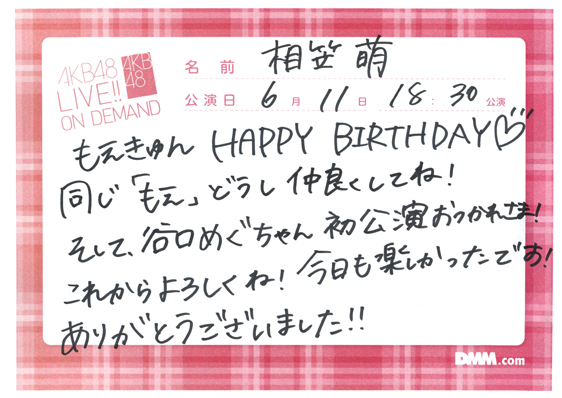 AKB48
LIVE!!
ON DEMAND
AKB
48
名前 相笠萌
公演日 6月 11日 18:30公演
もえきゅん HAPPY BIRTHDAY♡
同じ「もえ」どうし仲良くしてね!
そして、谷口めぐちゃん初公演おつかれさま!
これからよろしくね!今日も楽しかったです!
ありがとうございました!!
DMM.com